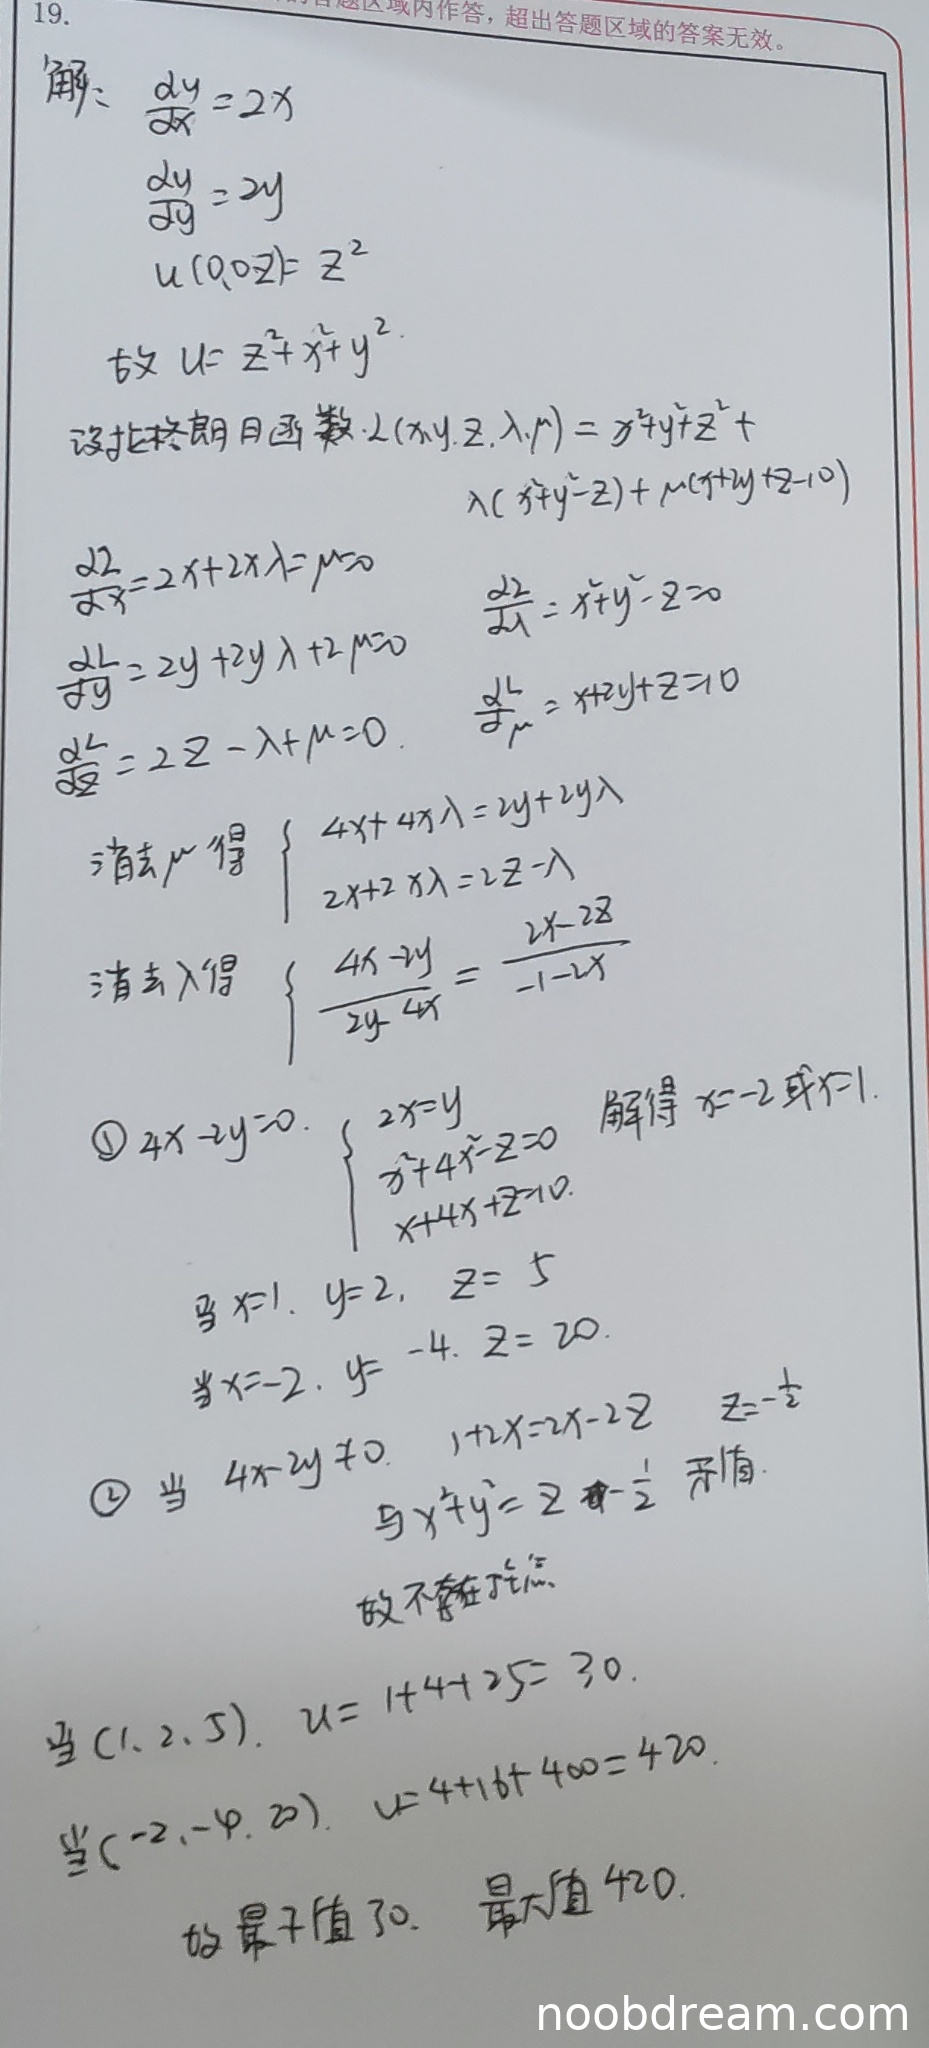 19.
答题区域内作答，超出答题区域的答案无效。
解: ∂u/∂x = 2x
∂u/∂y = 2y
u(0,0,z) = z²
故 u = z²+x²+y².
设拉格朗日函数. L(x,y,z,λ,μ) = x²+y²+z²+
λ(x²+y²-z) + μ(x+2y+z-10)
∂L/∂x = 2x+2xλ=μ=0
∂L/∂λ = x²+y²-z=0
∂L/∂y = 2y+2yλ+2μ=0
∂L/∂μ = x+2y+z=10
∂L/∂z = 2z-λ+μ=0.
消去μ得 { 4x+4xλ=2y+2yλ
2x+2xλ=2z-λ
消去λ得 { (4x-2y)/(2y-4x) = (2x-2z)/(-1-2x)
① 4x-2y=0. { 2x=y
x²+4x²-z=0
x+4x+z=10.
解得 x=-2或x=1.
当x=1. y=2, z=5
当x=-2. y=-4. z=20.
② 当 4x-2y≠0. 1+2x=2x-2z z=-1/2
与x²+y²=z -1/2 矛盾.
故不存在
当(1、2、5). u=1+4+25=30.
当(-2、-4、20). u=4+16+400=420.
故最小值30. 最大值420.
noobdream.com